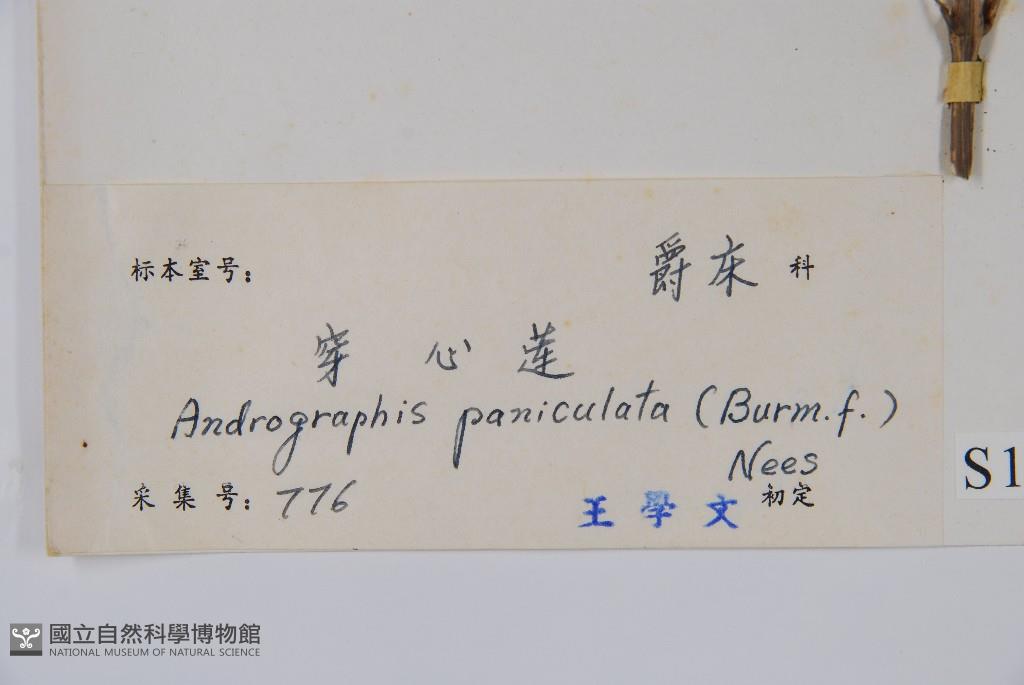 标本室号： 爵床 科
穿心莲
Andrographis paniculata (Burm.f.)
Nees
采集号：776 王學文 初定
S1
國立自然科學博物館
NATIONAL MUSEUM OF NATURAL SCIENCE